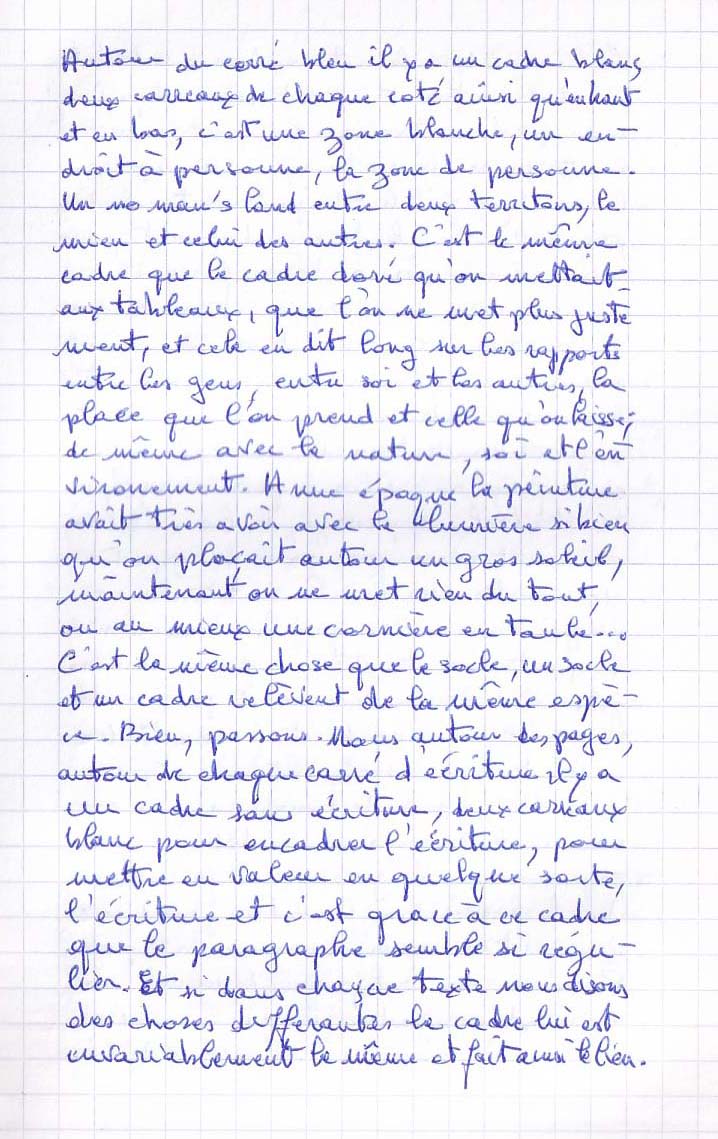 Autour du carré bleu il y a un cadre blanc,
deux carreaux de chaque coté ainsi qu'en haut
et en bas, c'est une zone blanche, un en-
droit à personne, la zone de personne.
Un no man's land entre deux territons, le
mien et celui des autres. C'est le même
cadre que le cadre doré qu'on mettait
aux tableaux, que l'on ne met plus juste
ment, et cela en dit long sur les rapports
entre les gens, entre soi et les autres, la
place que l'on prend et celle qu'on laisse,
de même avec la nature, soi et l'en
vironement. A une époque la peinture
avait très avoir avec la lumière si bien
qu'on plaçait autour un gros soleil,
maintenant on ne met rien du tout,
ou au mieux une cornière en taule...
C'est la même chose que le socle, un socle
et un cadre relèvent de la même espè-
ce. Bien, passons. Mais autour des pages,
autour de chaque carré d'écriture il y a
un cadre sans écriture, deux carreaux
blanc pour encadrer l'écriture, pour
mettre en valeur en quelque sorte,
l'écriture et c'est grace à ce cadre
que le paragraphe semble si régu-
lier. Et si dans chaque texte nous disons
des choses differantes le cadre lui est
invariablement le même et fait ainsi le lien.